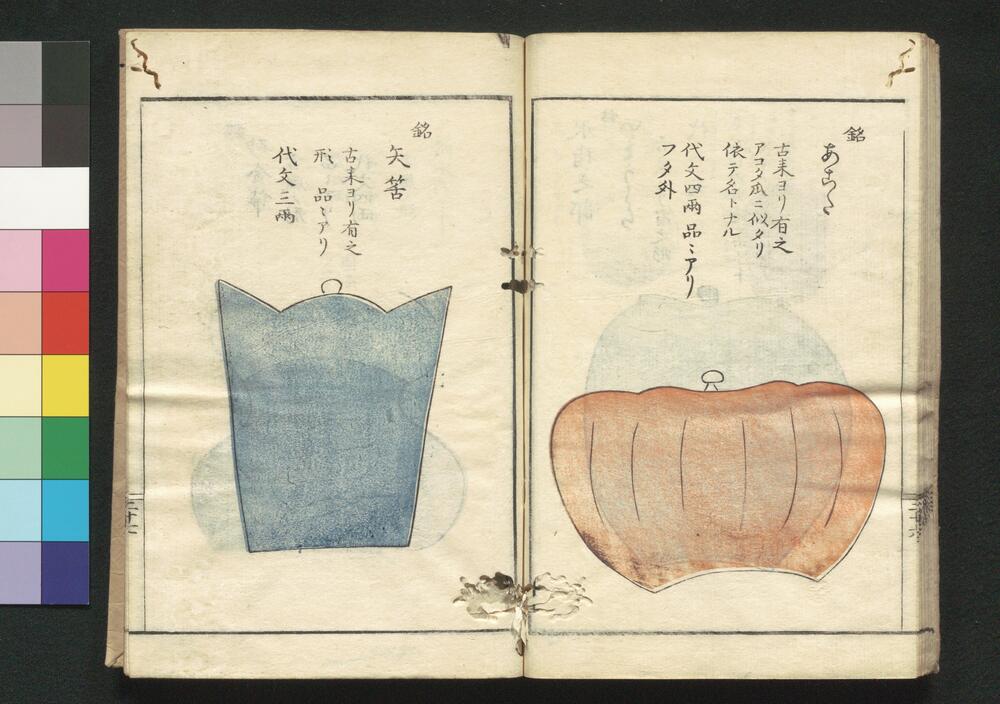 銘
あこた
古来ヨリ有之
アコタ瓜ニ似タリ
依テ名トナル
代文四両 品ミアリ
フタ外
銘
矢筈
古来ヨリ有之
形 品ミアリ
代文三両